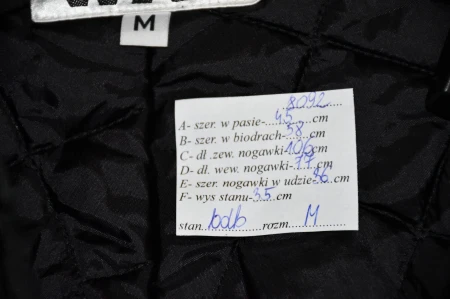 M
8092
A- szer. w pasie-...45...cm
B- szer. w biodrach-58...cm
C- dł. zew. nogawki-106cm
D- dł. wew. nogawki-77cm
E- szer. nogawki w udzie-36cm
F- wys stanu-35cm
stan bdb rozm M